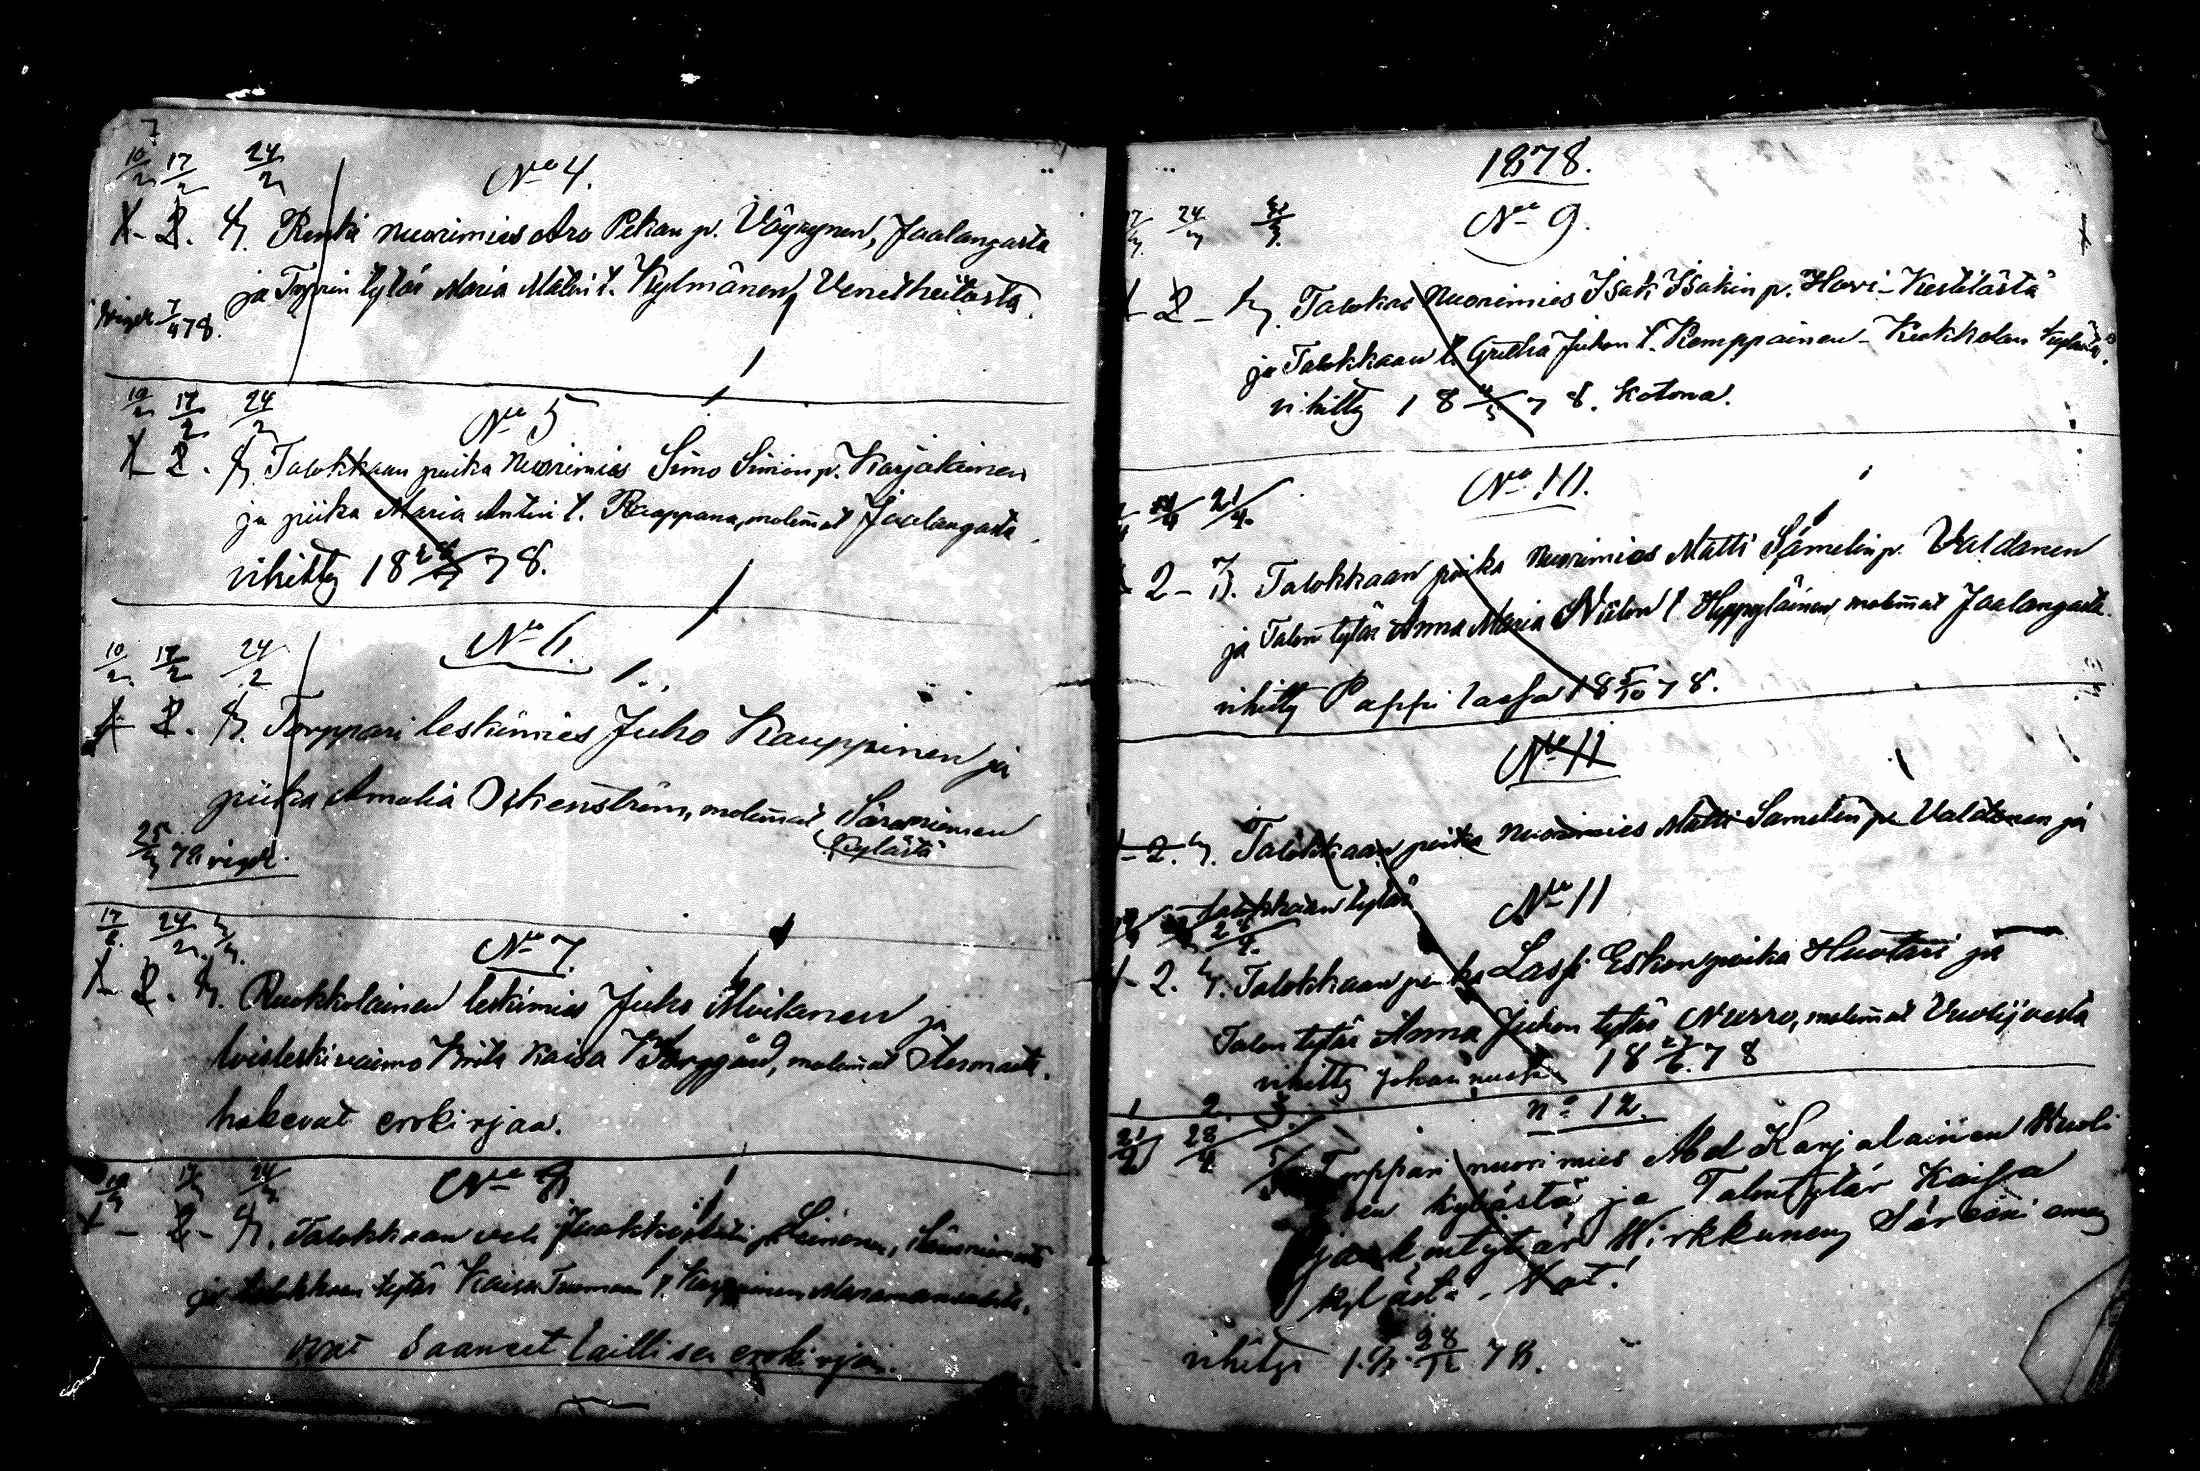 7
10/2 17/2 24/2
No 4.
1. 2. 3. Renki nuorimies Aro Pekan p. Väyrynen, Jaalangasta
ja Torpin tytär Maria Matin t. Kylmänen, Venetheitosta.
7/4 78.
10/2 17/2 24/2
No 5
1. 2. 3. Talokkaan poika Nuorimies Simo Simon p. Karjalainen
ja piika Maria Antin t. Raappana, molemat Jaalangasta.
vihitty 18 78.
10/2 17/2 24/2
No 6.
1. 2. 3. Torppari leskimies Juho Kauppinen ja
piika Amalia molemat Säräisniemen
kylästä
25/3 78 vigde.
17/2 24/2 3/3
No 7.
1. 2. 3. Ruokkolainen leskimies Juho Moilanen ja
loisleskivaimo Brita Kaisa molemat
hakevat erokirjaa.
10/2 17/2 24/2
No 8
1 - 2 - 3. Talokkaan Jaakko Leinonen,
ja talokkaan tytär Kaisa Tuomaan t.
ovat saaneet laillisen erokirjan.
1878.
No 9.
17/3 24/3 31/3
1 - 2 - 3. Talokas Nuorimies Isak Isakin p. Hovi - Kestilästä
ja Talokkaan t. Greeta Juhon t. Kemppainen - Kukkolan kylästä.
vihitty 18 78. kotona.
No 10.
14/4 21/4.
1 - 2 - 3. Talokkaan poika Nuorimies Matti Samelin p. Valdanen
ja Talon tytär Anna Maria Niilon t. Heppyläinen, molemat Jaalangasta.
vihitty Pappilassa 18 5/10 78.
No 11
1 - 2. 3. Talokkaan poika Nuorimies Matti Samelin p. Valdanen ja
talokkaan tytär
No 11
28/4.
1 - 2. 3. Talokkaan poika Lassi Eskonpoika Huotari ja
Talon tytär Anna Juhon tytär Nurro, molemat Vuolijoesta
vihitty 18 78
1 2. 3.
no 12.
21/4 28/4 5/5
Torppari nuorimies Abel Karjalainen Wuoli
en kylästä ja Talontytär Kaisa
Jaakontytär Wirkkunen Säräisniemen
kylästä.
vihityt 18 28/12 78.